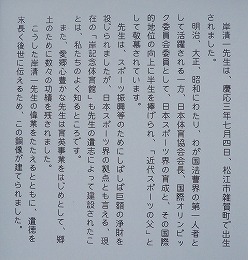 岸清一先生は、慶応三年七月四日、松江市雑賀町で出生
されました。
明治、大正、昭和にわたり、わが国法曹界の第一人者と
して活躍される一方、日本体育協会会長、国際オリンピッ
ク委員会委員として、日本スポーツ界の育成と、その国際
的地位の向上に半生を捧げられ、「近代スポーツの父」と
して敬慕されています。
先生は、スポーツ振興等のためにしばしば巨額の浄財を
投じられましたが、日本スポーツ界の拠点とも言える、現
在の「岸記念体育館」も先生の遺志によって建設されたこ
とは、私たちのよく知るところです。
また、愛郷心豊かな先生は育英事業をはじめとして、郷
土のために数々の功績を残されました。
こうした岸清一先生の偉業をたたえるとともに、遺徳を
末長く後世に伝えるため、この銅像が建てられました。